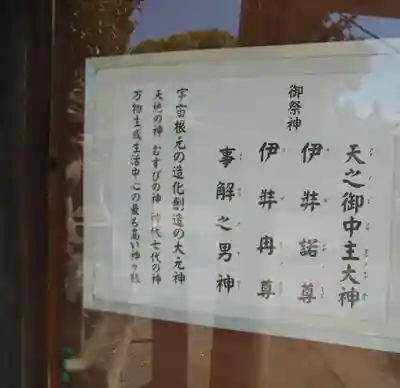 御祭神
天之御中主大神
伊弉諾尊
伊弉冉尊
事解之男神
宇宙根元の造化創造の大元神
天地の神 むすびの神 神代七代の神
万物生成生活中心の最も高い神々様